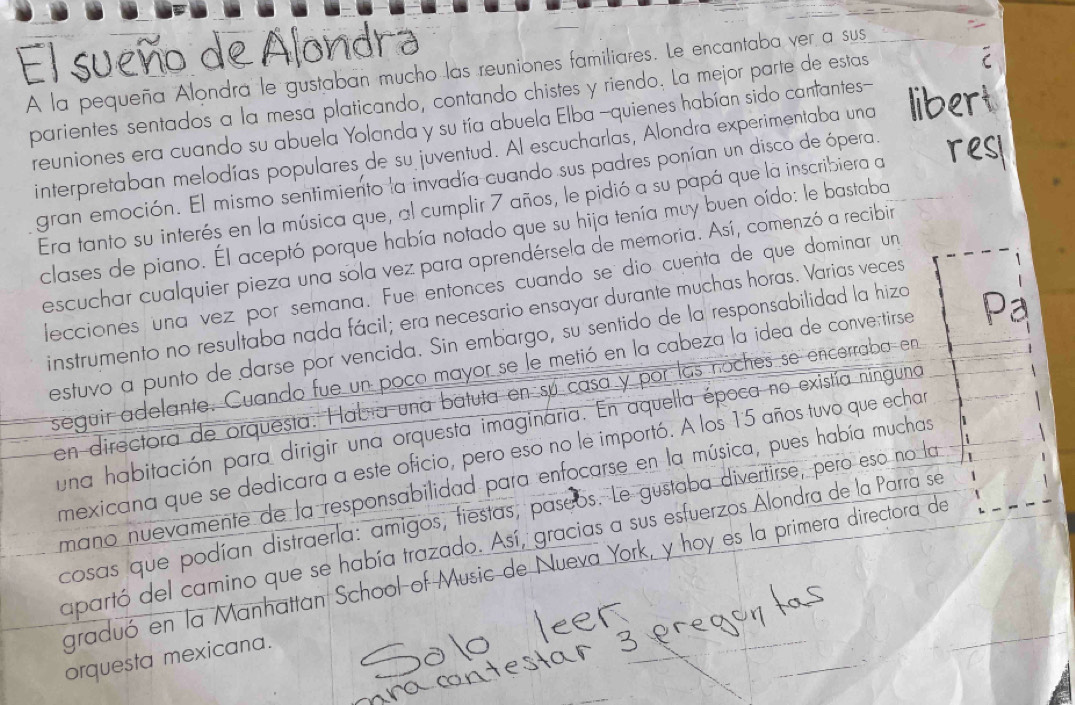 El sueño de Alondra
A la pequeña Alondra le gustaban mucho las reuniones familiares. Le encantaba ver a sus
parientes sentados a la mesa platicando, contando chistes y riendo. La mejor parte de estas
reuniones era cuando su abuela Yolanda y su tía abuela Elba -quienes habían sido cantantes-
interpretaban melodías populares de su juventud. Al escucharlas, Alondra experimentaba una
gran emoción. El mismo sentimiento la invadía cuando sus padres ponían un disco de ópera.
Era tanto su interés en la música que, al cumplir 7 años, le pidió a su papá que la inscribiera a
clases de piano. Él aceptó porque había notado que su hija tenía muy buen oído: le bastaba
escuchar cualquier pieza una sola vez para aprendérsela de memoria. Así, comenzó a recibir
lecciones una vez por semana. Fue entonces cuando se dio cuenta de que dominar un
instrumento no resultaba nada fácil; era necesario ensayar durante muchas horas. Varias veces
estuvo a punto de darse por vencida. Sin embargo, su sentido de la responsabilidad la hizo
seguir adelante. Cuando fue un poco mayor se le metió en la cabeza la idea de convertirse
en directora de orquesta. Había una batuta en su casa y por las noches se encerraba en
una habitación para dirigir una orquesta imaginaria. En aquella época no existía ninguna
mexicana que se dedicara a este oficio, pero eso no le importó. A los 15 años tuvo que echar
mano nuevamente de la responsabilidad para enfocarse en la música, pues había muchas
cosas que podían distraerla: amigos, fiestas, paseos. Le gustaba divertirse, pero eso no la
apartó del camino que se había trazado. Así, gracias a sus esfuerzos Alondra de la Parra se
graduó en la Manhattan School of Music de Nueva York, y hoy es la primera directora de
orquesta mexicana.
Solo leer
para contestar 3 pregontas
libert
resp
Pa